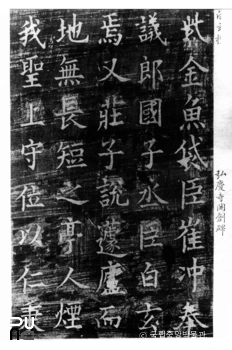 紫金魚袋臣崔冲奉
議郎國子丞臣白玄
焉又莊子說蘧廬而
地無長短之亭人煙
我聖上守位以仁秉
弘慶寺開創碑
국립중앙박물관